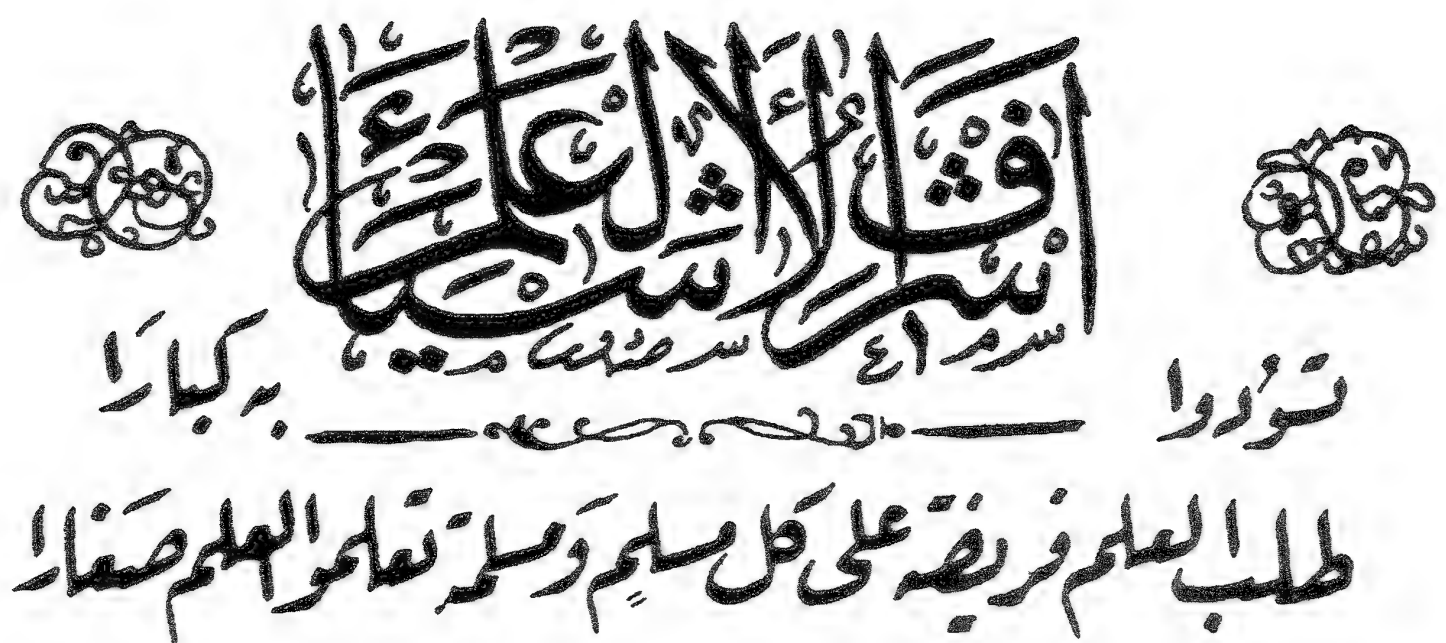 اشرف الاشياء العلم
تسوُدوا به كبارَا
طلب العلم فريضة على كل مسلمٍ وَمسلمة تعلموا العلم صغارا